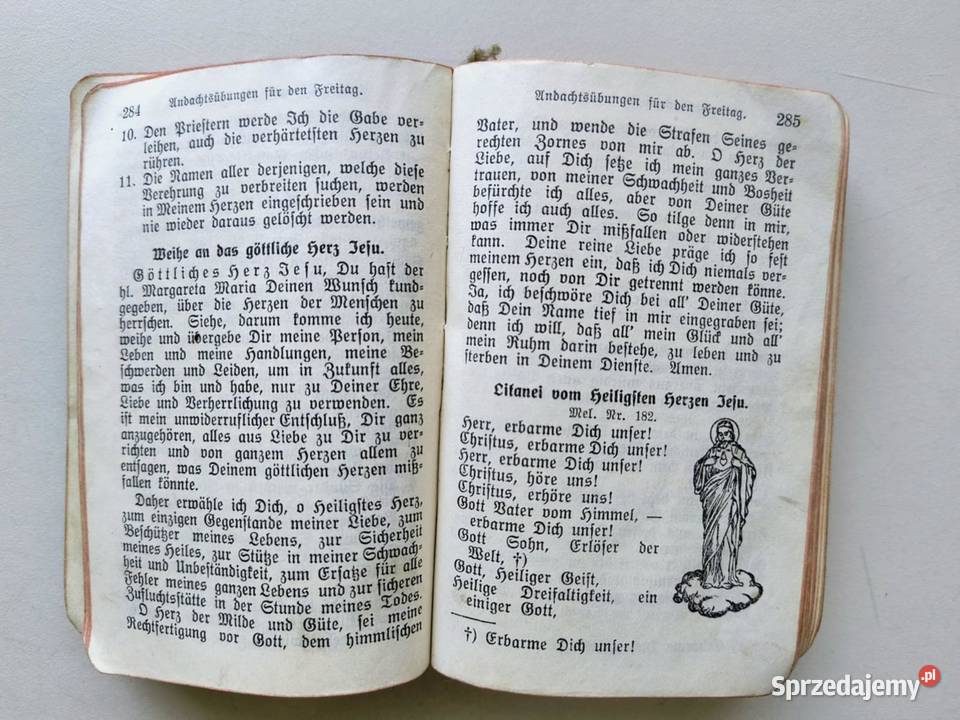 284 Andachtsübungen für den Freitag.
10. Den Priestern werde Ich die Gabe ver-
leihen, auch die verhärtetsten Herzen zu
rühren.
11. Die Namen aller derjenigen, welche diese
Verehrung zu verbreiten suchen, werden
in Meinem Herzen eingeschrieben sein und
nie wieder daraus gelöscht werden.
Weihe an das göttliche Herz Jesu.
Göttliches Herz Jesu, Du hast der
hl. Margareta Maria Deinen Wunsch kund-
gegeben, über die Herzen der Menschen zu
herrschen. Siehe, darum komme ich heute,
weihe und übergebe Dir meine Person, mein
Leben und meine Handlungen, meine Be-
schwerden und Leiden, um in Zukunft alles,
was ich bin und habe, nur zu Deiner Ehre,
Liebe und Verherrlichung zu verwenden. Es
ist mein unwiderruflicher Entschluß, Dir ganz
anzugehören, alles aus Liebe zu Dir zu ver-
richten und von ganzem Herzen allem zu
entsagen, was Deinem göttlichen Herzen miß-
fallen könnte.
Daher erwähle ich Dich, o Heiligstes Herz,
zum einzigen Gegenstande meiner Liebe, zum
Beschützer meines Lebens, zur Sicherheit
meines Heiles, zur Stütze in meiner Schwach-
heit und Unbeständigkeit, zum Ersatze für alle
Fehler meines ganzen Lebens und zur sicheren
Zufluchtsstätte in der Stunde meines Todes.
O Herz der Milde und Güte, sei meine
Rechtfertigung vor Gott, dem himmlischen
Andachtsübungen für den Freitag. 285
Vater, und wende die Strafen Seines ge-
rechten Zornes von mir ab. O Herz der
Liebe, auf Dich setze ich mein ganzes Ver-
trauen, von meiner Schwachheit und Bosheit
befürchte ich alles, aber von Deiner Güte
hoffe ich auch alles. So tilge denn in mir,
was immer Dir mißfallen oder widerstehen
kann. Deine reine Liebe präge ich so fest
meinem Herzen ein, daß ich Dich niemals ver-
gessen, noch von Dir getrennt werden könne.
Ja, ich beschwöre Dich bei all' Deiner Güte,
daß Dein Name tief in mir eingegraben sei;
denn ich will, daß all' mein Glück und all'
mein Ruhm darin bestehe, zu leben und zu
sterben in Deinem Dienste. Amen.
Litanei vom Heiligsten Herzen Jesu.
Mel. Nr. 182.
Herr, erbarme Dich unser!
Christus, erbarme Dich unser!
Herr, erbarme Dich unser!
Christus, höre uns!
Christus, erhöre uns!
Gott Vater vom Himmel, —
erbarme Dich unser!
Gott Sohn, Erlöser der
Welt, †)
Gott, Heiliger Geist,
Heilige Dreifaltigkeit, ein
einiger Gott,
†) Erbarme Dich unser!
Sprzedajemy.pl